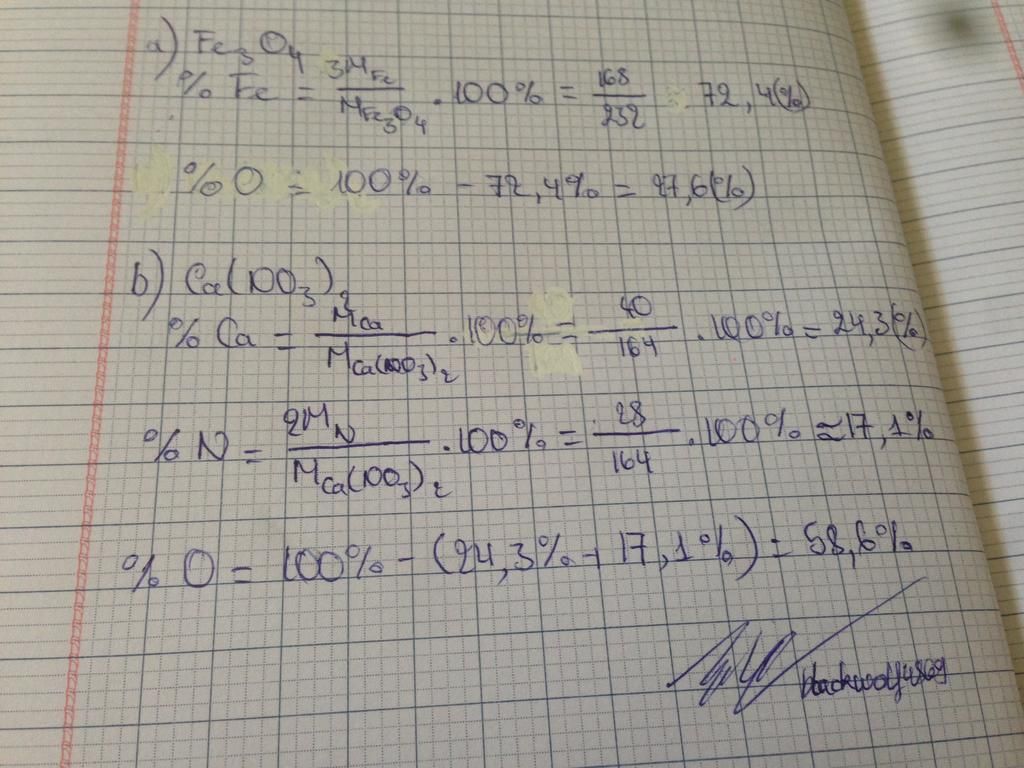 a) Fe₃O₄
% Fe = 3M_Fe / M_Fe₃O₄ . 100% = 168/232 = 72,4(%)
% O = 100% - 72,4% = 27,6(%)
b) Ca(NO₃)₂
% Ca = M_Ca / M_Ca(NO₃)₂ . 100% = 40/164 . 100% = 24,3(%)
% N = 2M_N / M_Ca(NO₃)₂ . 100% = 28/164 . 100% ≈ 17,1%
% O = 100% - (24,3% + 17,1%) = 58,6%